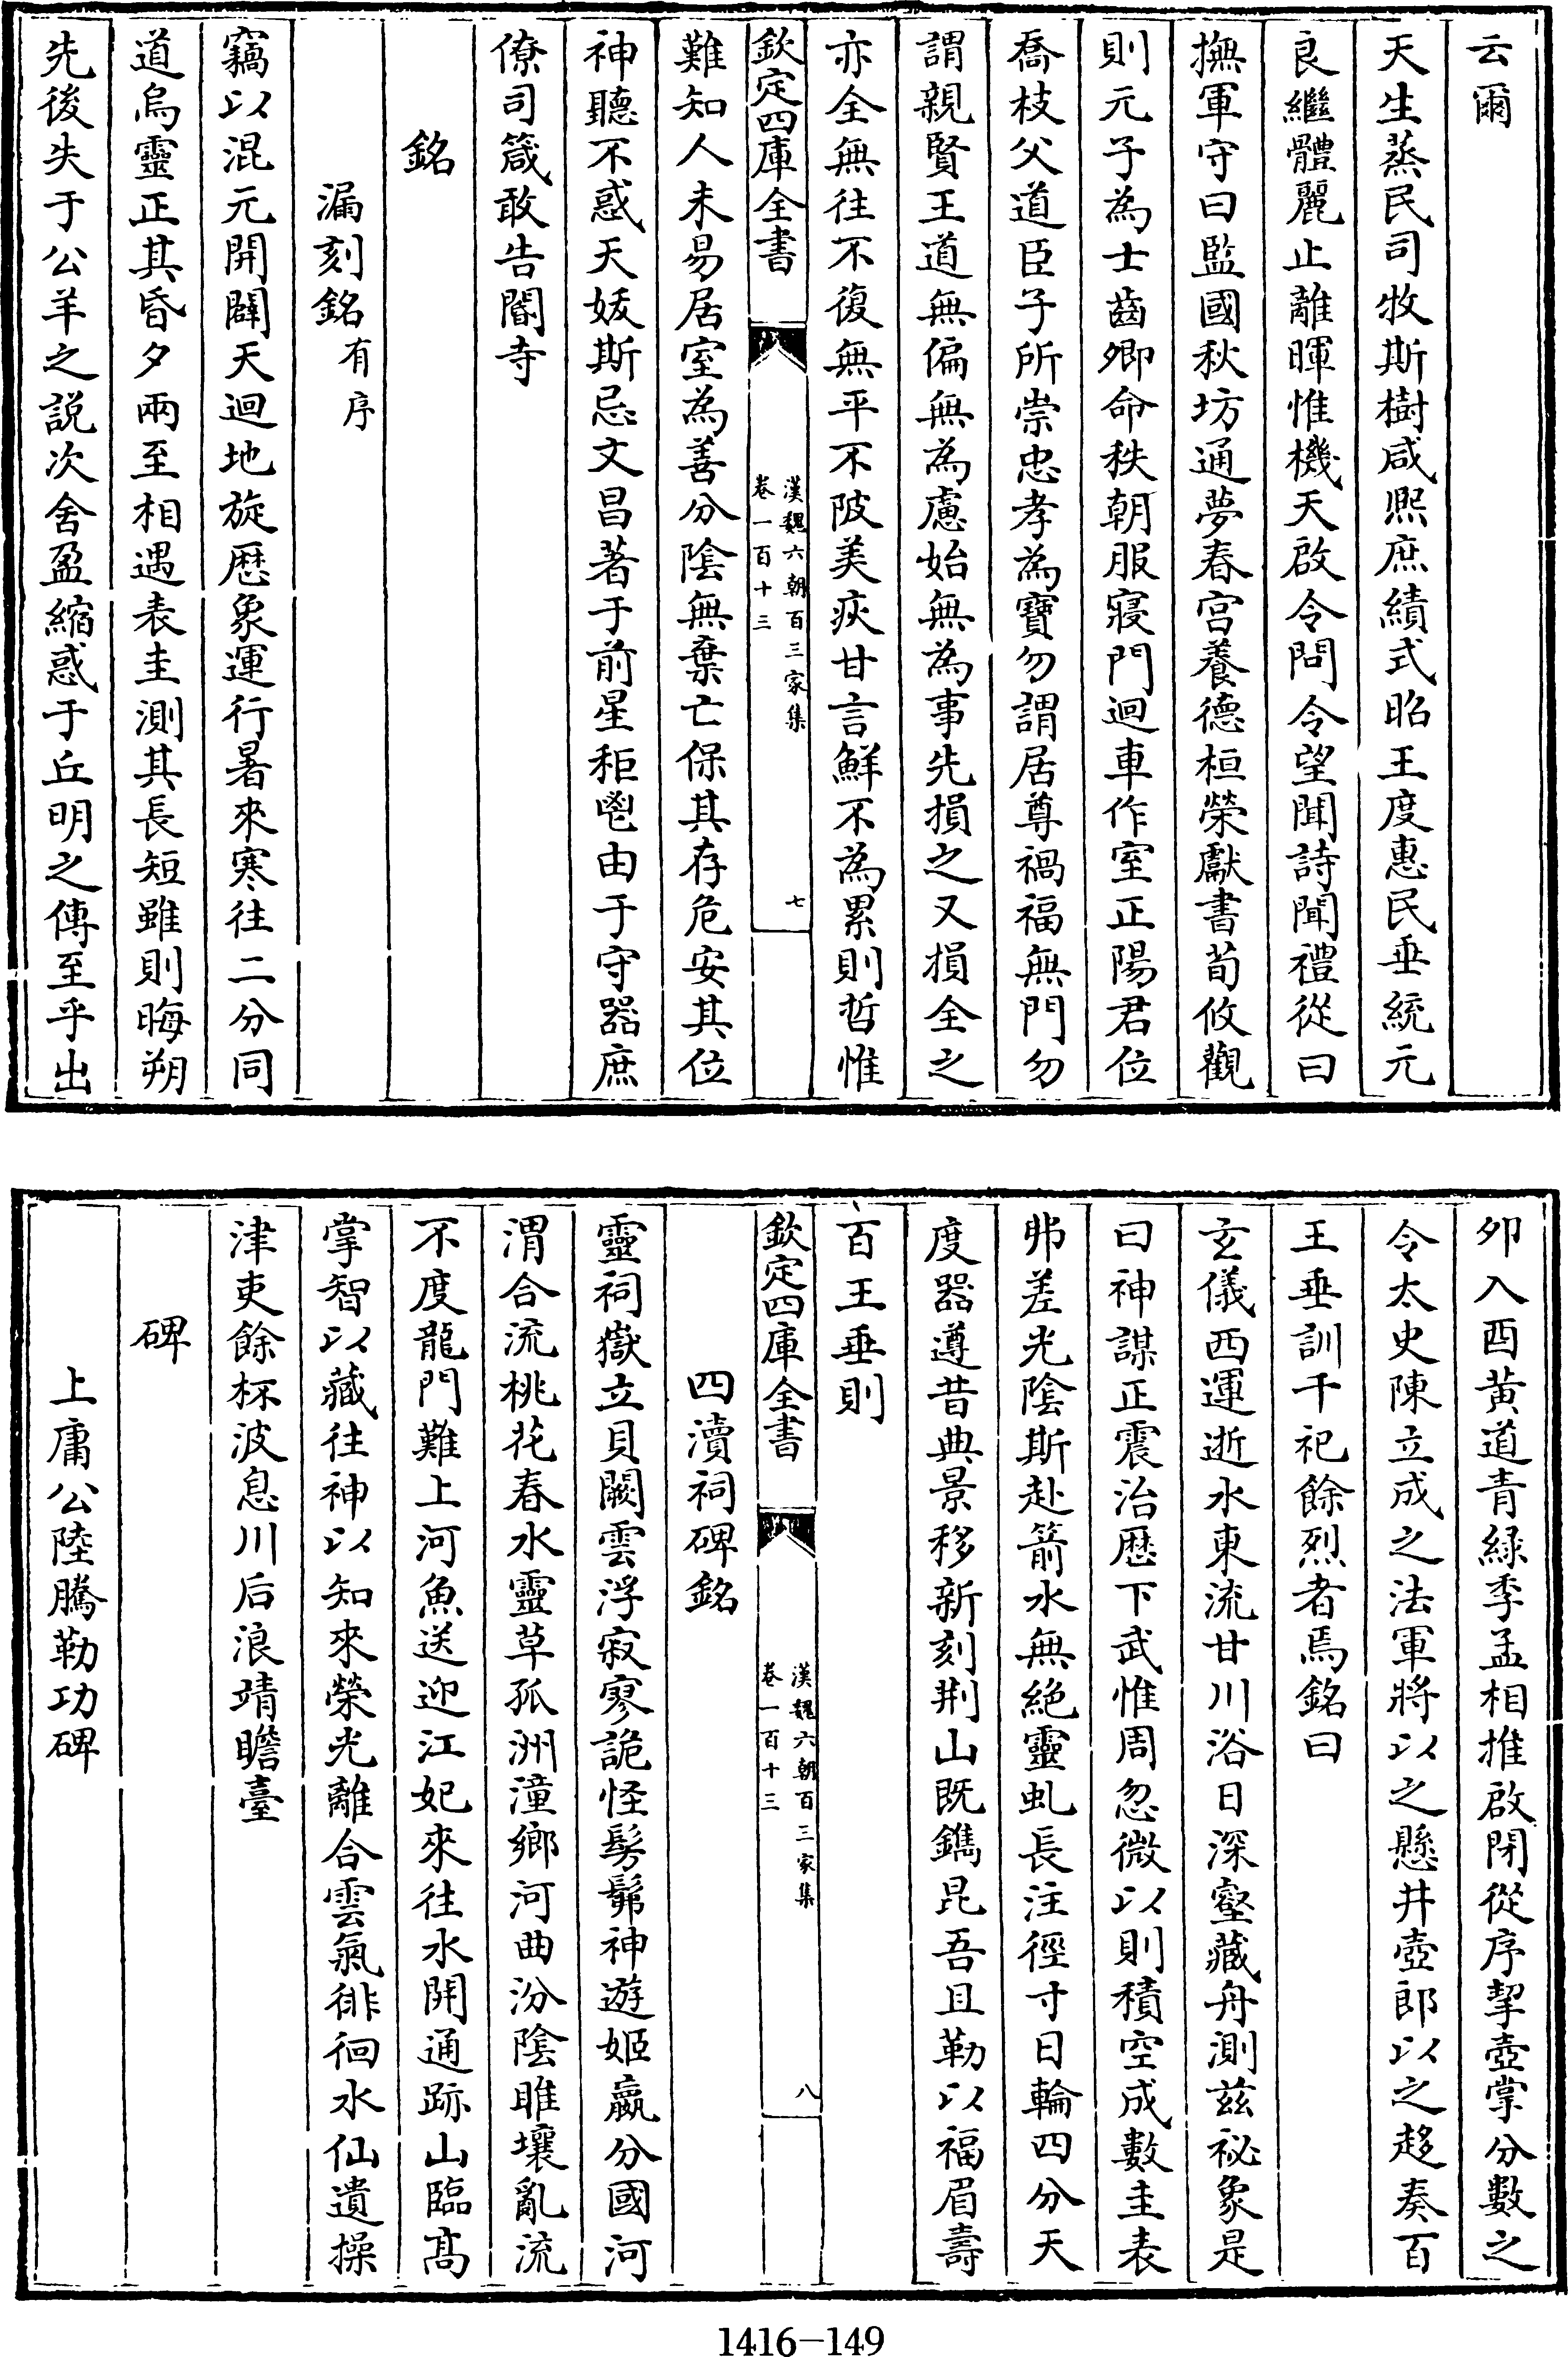 云爾
天生蒸民司牧斯樹咸熙庶績式昭王度惠民垂統元
良繼體麗止離暉惟機天啟令問令望聞詩聞禮從曰
撫軍守曰監國秋坊通夢春宮養德桓榮獻書荀攸觀
則元子為士齒卿命秩朝服寢門迴車作室正陽君位
喬枝父道臣子所崇忠孝為寶勿謂居尊禍福無門勿
謂親賢王道無偏無為慮始無為事先損之又損全之
亦全無往不復無平不陂美疢甘言鮮不為累則哲惟
欽定四庫全書
漢魏六朝百三家集
卷一百十三
七
難知人未易居室為善分陰無棄亡保其存危安其位
神聽不惑天妖斯忌文昌著于前星秬鬯由于守器庶
僚司箴敢告閽寺
銘
漏刻銘有序
竊以混元開闢天迴地旋厯象運行暑來寒往二分同
道烏靈正其昏夕兩至相遇表圭測其長短雖則晦朔
先後失于公羊之說次舍盈縮惑于丘明之傳至乎出
卯入酉黃道青緑季孟相推啟閉從序挈壺掌分數之
令太史陳立成之法軍將以之懸井壺郎以之趍奏百
王垂訓千祀餘烈者焉銘曰
玄儀西運逝水東流甘川浴日深壑藏舟測茲祕象是
曰神謀正震治厯下武惟周忽微以則積空成數圭表
弗差光陰斯赴箭水無絶靈虬長注徑寸日輪四分天
度器遵昔典景移新刻荆山既鐫昆吾且勒以福眉壽
百王垂則
欽定四庫全書
漢魏六朝百三家集
卷一百十三
八
四瀆祠碑銘
靈祠嶽立貝闕雲浮寂寥詭怪髣髴神遊姬嬴分國河
渭合流桃花春水靈草孤洲潼鄉河曲汾陰睢壤亂流
不度龍門難上河魚送迎江妃來往水開通跡山臨髙
掌智以藏往神以知來榮光離合雲氣徘徊水仙遺操
津吏餘杯波息川后浪靖瞻臺
碑
上庸公陸騰勒功碑
1416-149